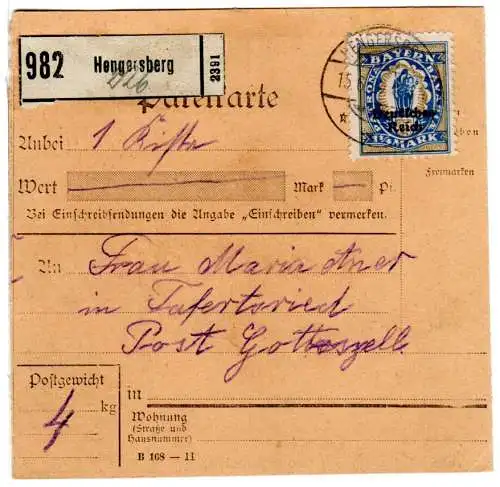 982 Hengersberg 2391
226
HENGERS
15.
BAYERN
PATRONA BAVARIAE
Deutsches
Reich
MARK
Paketkarte
Anbei 1 Kiste
Wert Mark Pf.
Freimarken
Bei Einschreibsendungen die Angabe "Einschreiben" vermerken.
An Frau Maria Aner
in Tafertsried
Post Gotteszell
Postgewicht
4 kg
in
Wohnung
(Straße und
Hausnummer)
B 168 — 11